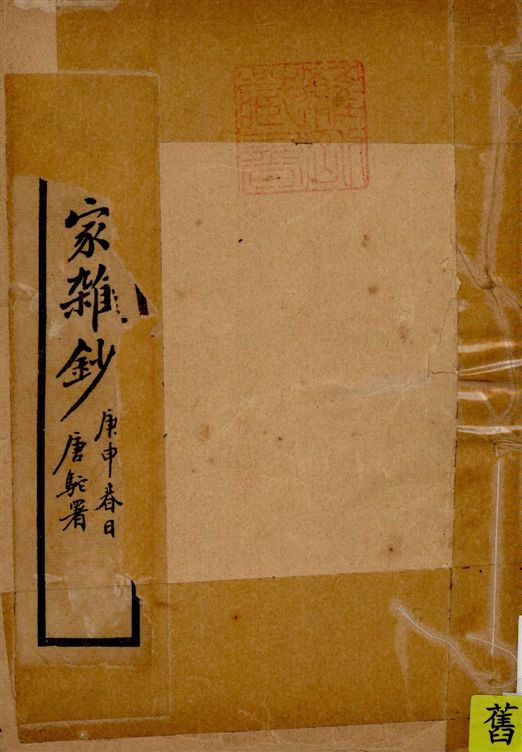 家雜鈔
庚申春日
唐駝署
舊